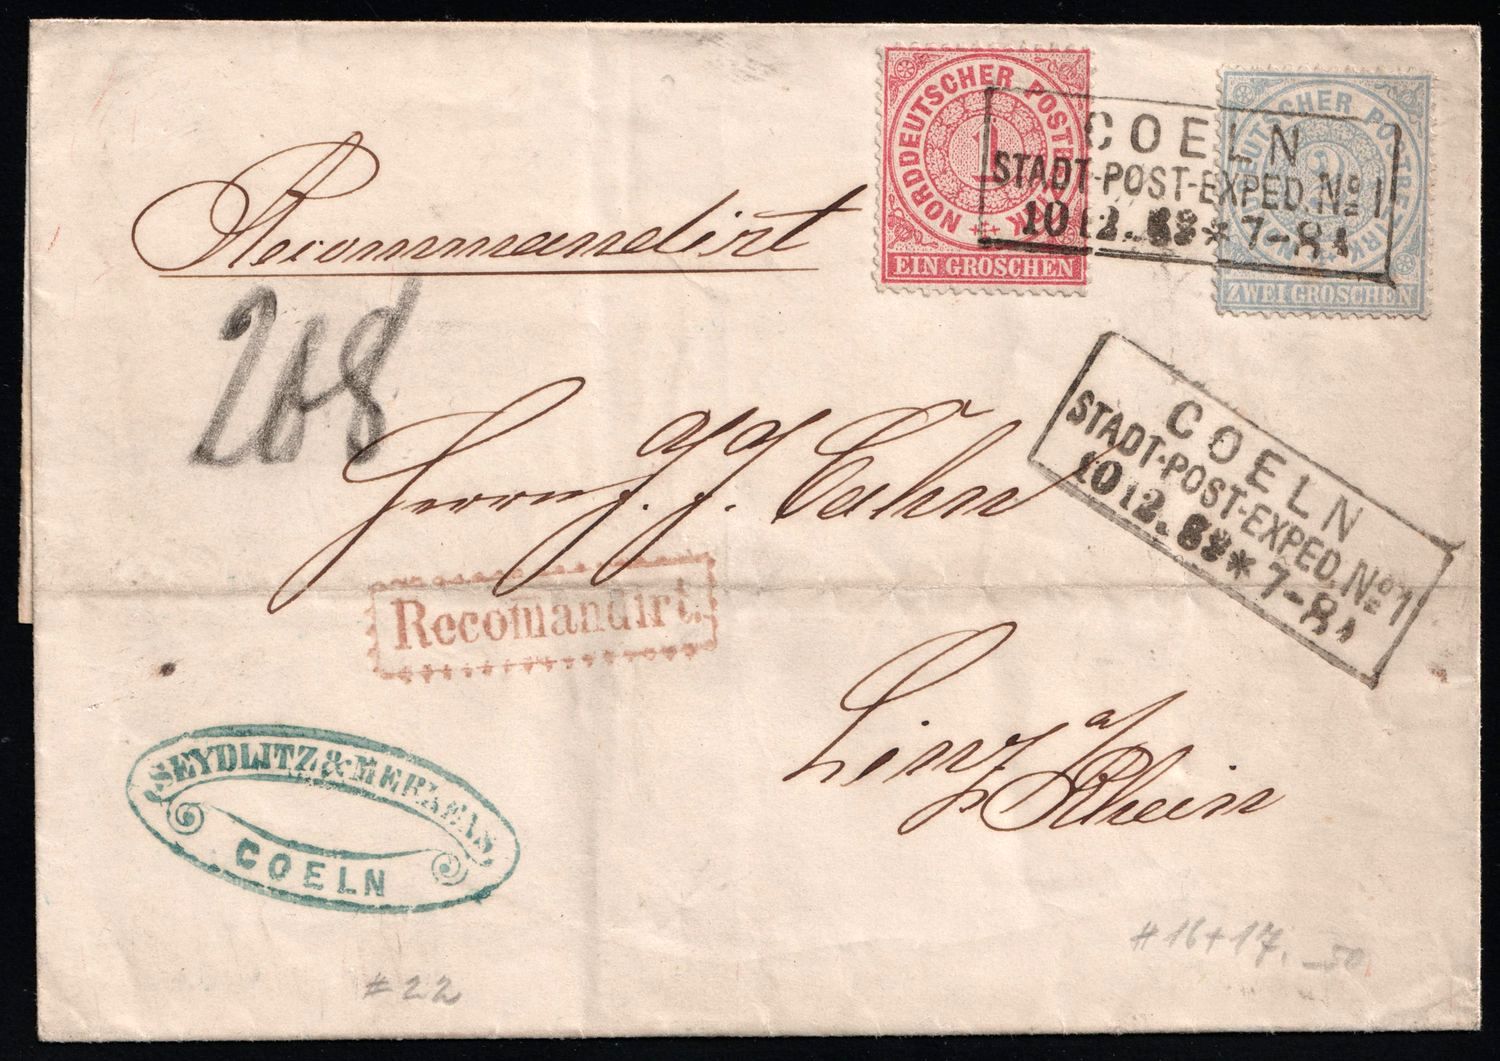 NORDDEUTSCHER POSTBEZIRK
1
EIN GROSCHEN
NORDDEUTSCHER POSTBEZIRK
2
ZWEI GROSCHEN
COELN
STADT-POST-EXPED. No 1
10 12. * 7-8
Recommandirt
208
Herrn J. J. Cahn
COELN
STADT-POST-EXPED. No 1
10 12. * 7-8
Recomandirt.
Linz a/ Rhein
SEYDLITZ & MERKENS
COELN
# 16 + 17. - 50
# 22